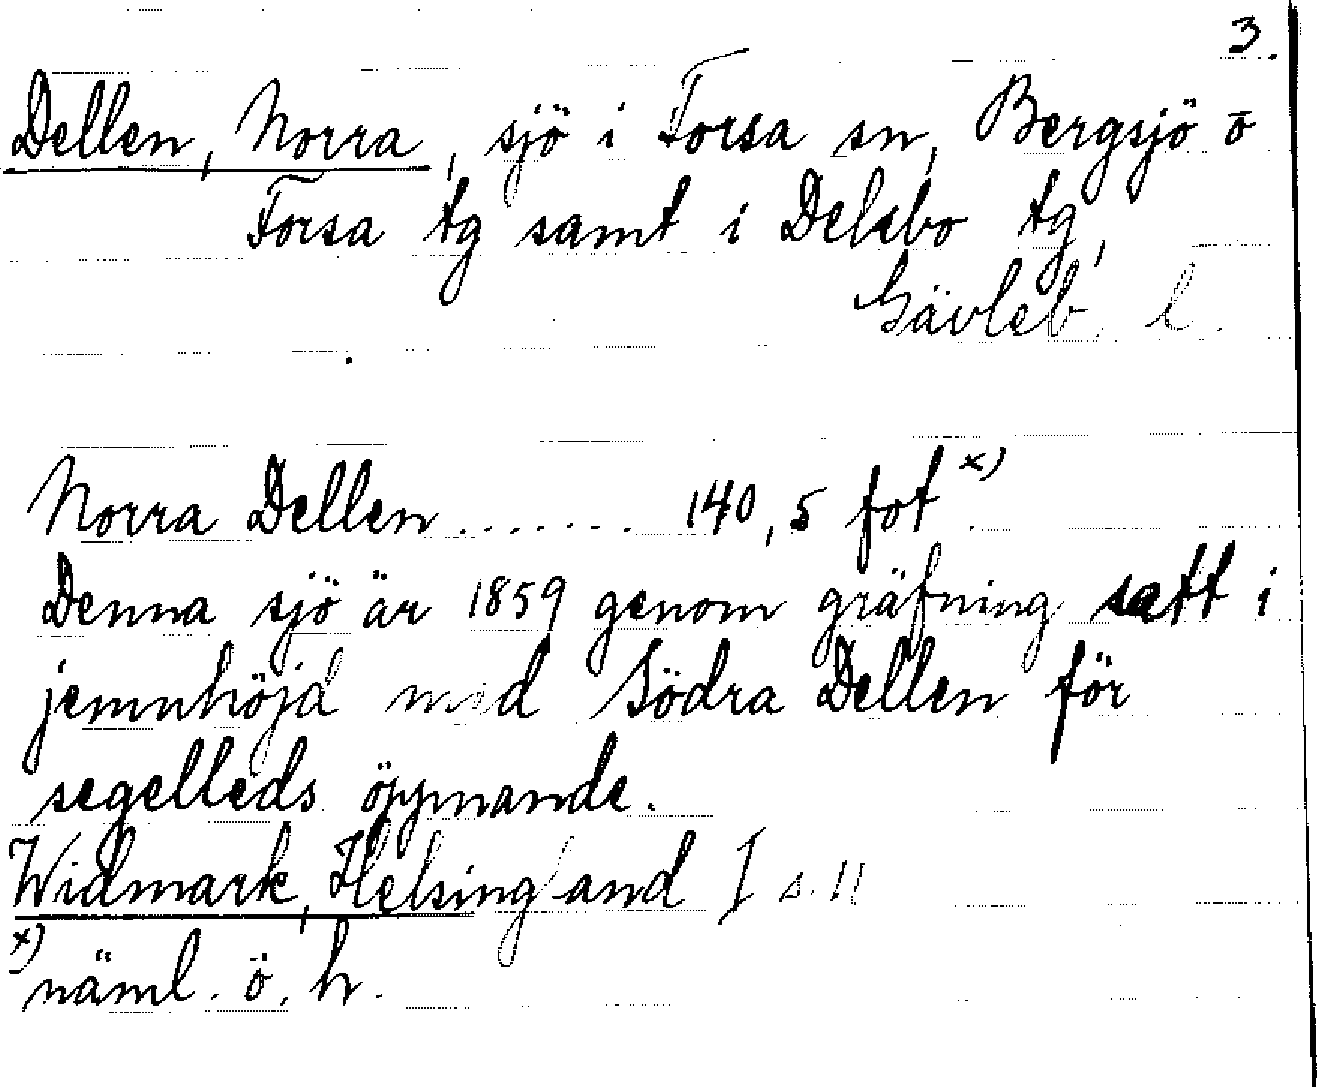 3.
Dellen, Norra, sjö i Forsa sn, Bergsjö o
Forsa tg samt i Delsbo tg,
Gävleb. l.
Norra Dellen ....... 140,5 fot x)
Denna sjö är 1859 genom gräfning satt i
jemnhöjd med Södra Dellen för
segelleds öppnande.
Widmark, Helsingland I s. 11
x) näml. ö. h.